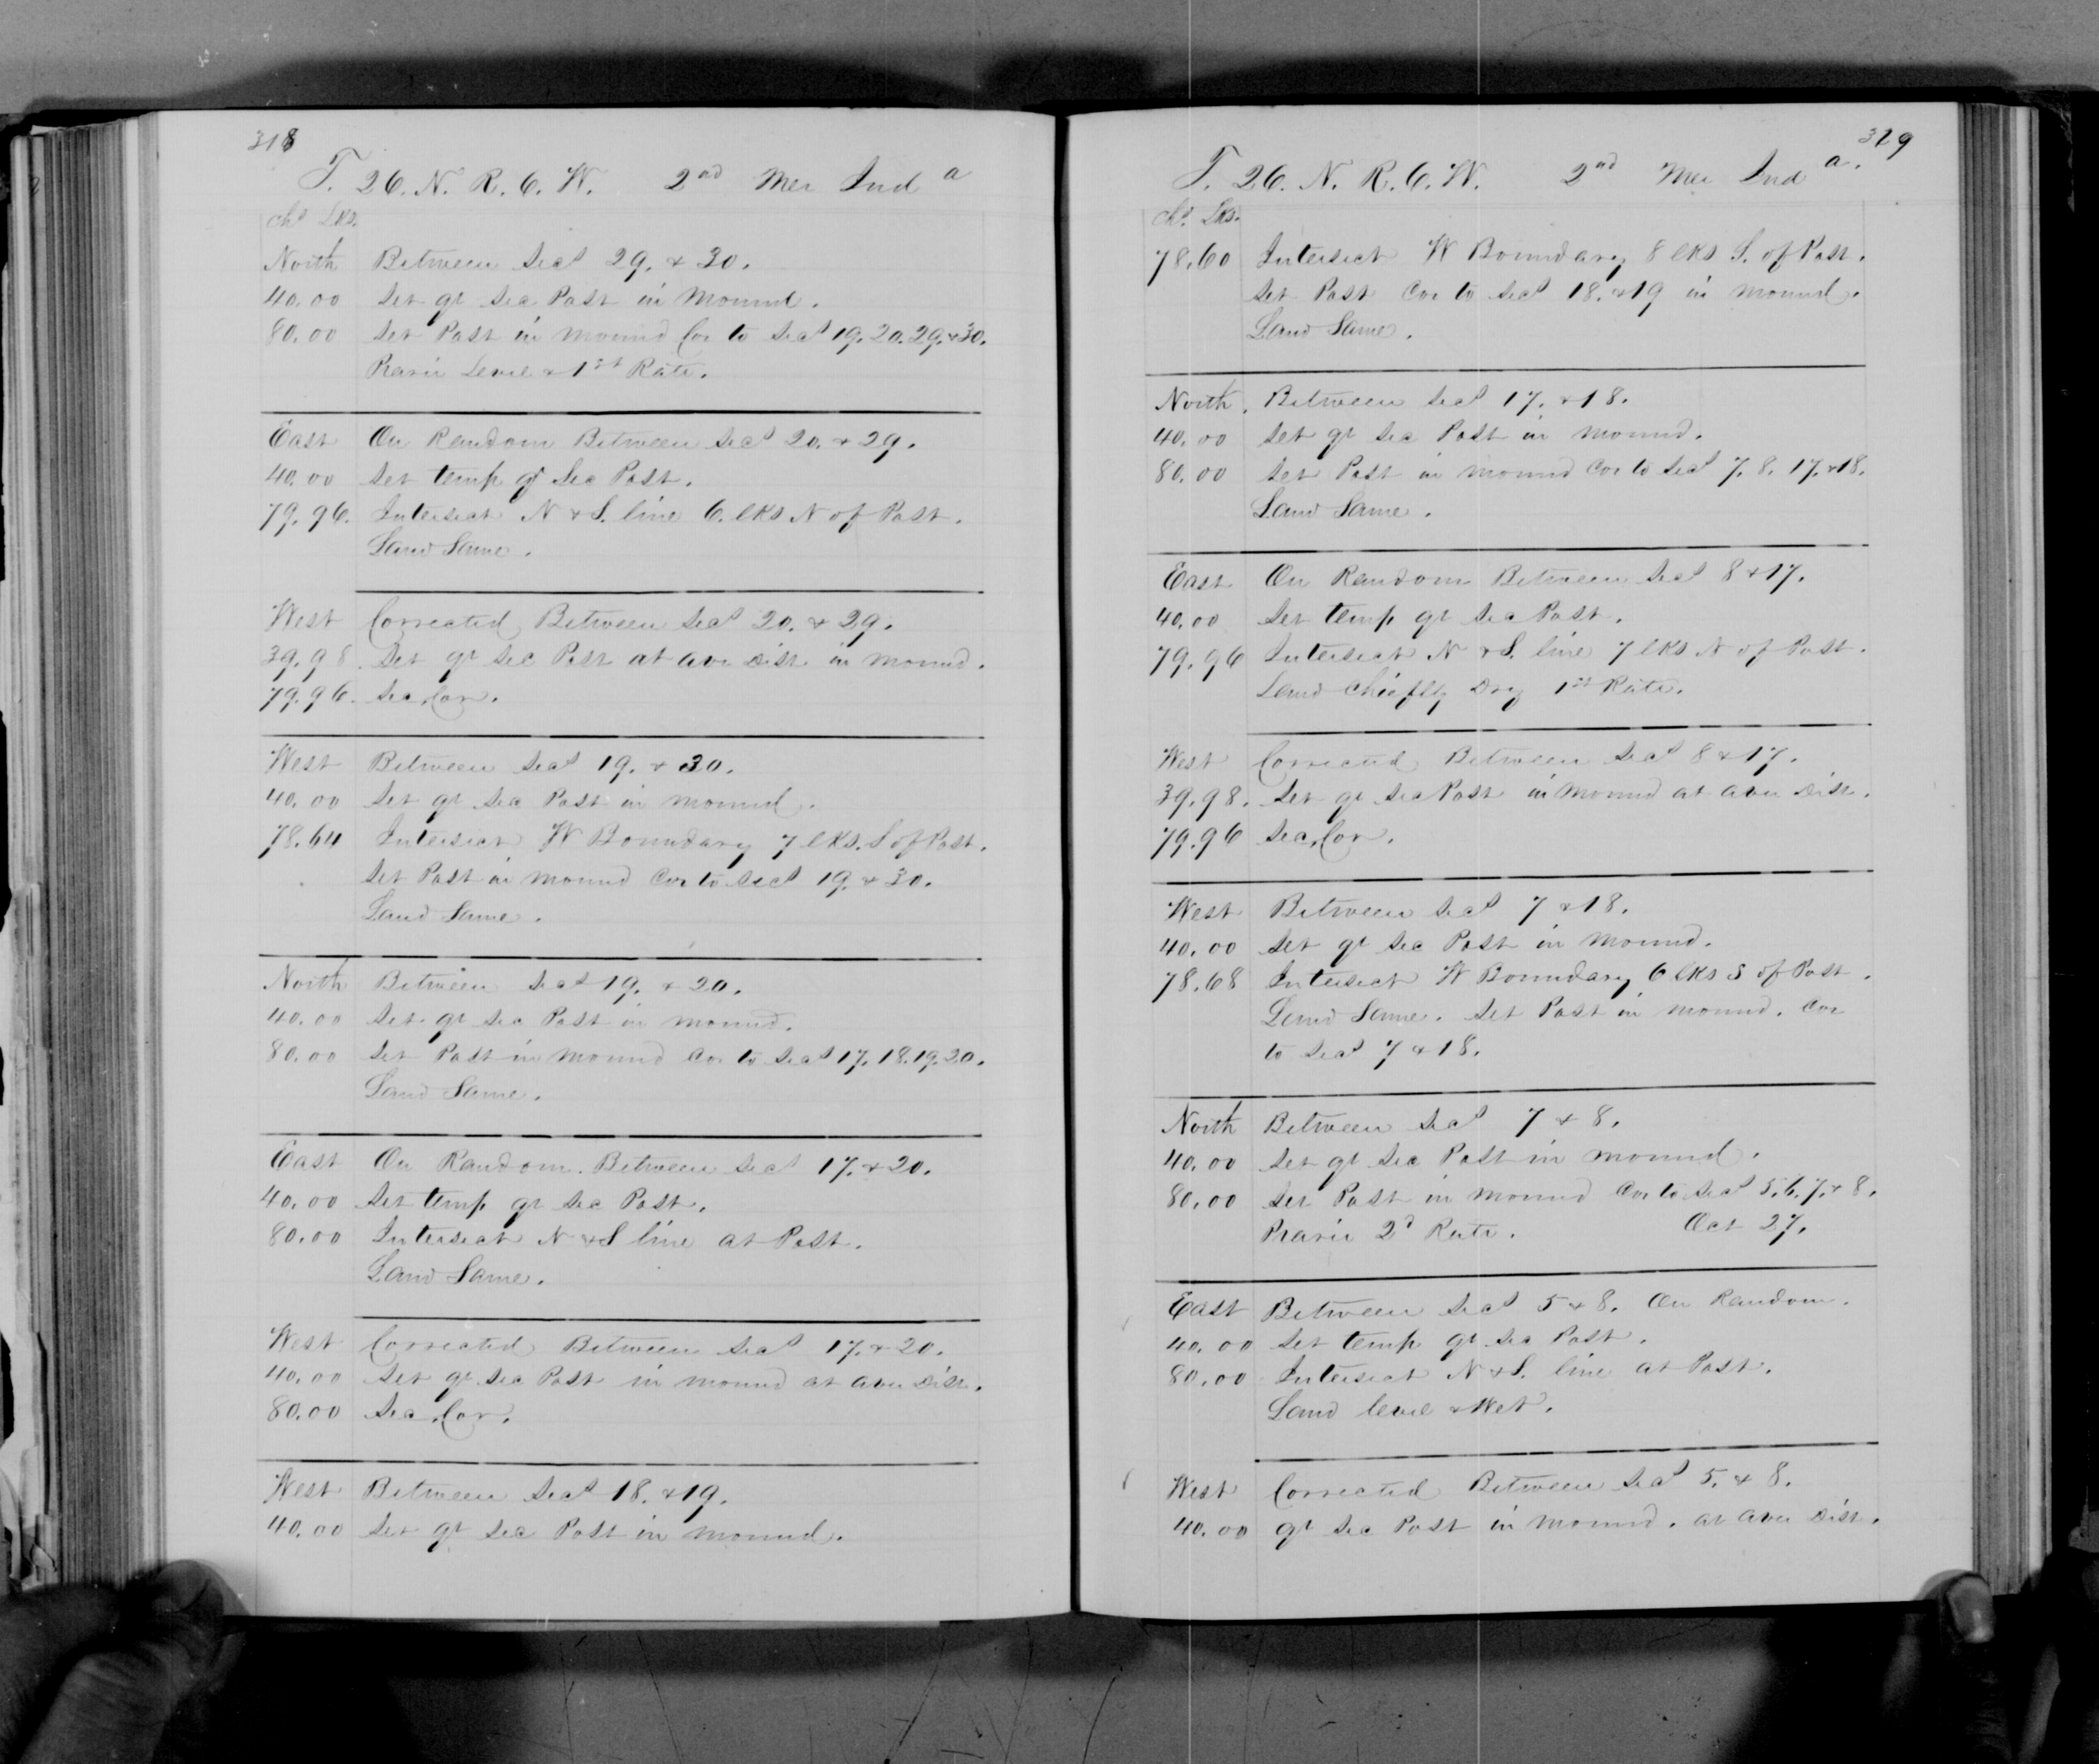 318
T. 26. N. R. 6. W. 2nd Mer Ind a
Chs Lks.
North Between Secs 29. & 30.
40.00 Set qr Sec Post in Mound.
80.00 Set Post in Mound Cor to Secs 19. 20. 29. & 30.
Prarie Level & 1st Rate.
East On Random Between Secs 20. & 29.
40.00 Set temp qr Sec Post.
79.96. Intersect N & S. line 6. lks N of Post.
Land Same.
West Corrected Between Secs 20. & 29.
39.98. Set qr Sec Post at aver Dist in Mound.
79.96. Sec. Cor.
West Between Secs 19. & 30.
40.00 Set qr Sec Post in Mound.
78.64 Intersect W Boundary 7 lks. S of Post.
Set Post in Mound Cor to Secs 19. & 30.
Land Same.
North Between Secs 19. & 20.
40.00 Set qr Sec Post in Mound.
80.00 Set Post in Mound Cor to Secs 17. 18. 19. 20.
Land Same.
East On Random. Between Secs 17. & 20.
40.00 Set temp qr Sec Post.
80.00 Intersect N & S line at Post.
Land Same.
West Corrected Between Secs 17. & 20.
40.00 Set qr Sec Post in Mound at aver Dist.
80.00 Sec. Cor.
West Between Secs 18. & 19.
40.00 Set qr Sec Post in Mound.
319
T. 26. N. R. 6. W. 2nd Mer Ind a.
Chs. Lks.
78.60 Intersect W Boundary 8 lks S. of Post.
Set Post Cor to Secs 18. & 19 in Mound.
Land Same.
North. Between Secs 17. & 18.
40.00 Set qr Sec Post in Mound.
80.00 Set Post in Mound Cor to Secs 7. 8. 17. & 18.
Land Same.
East On Random Between Secs 8 & 17.
40.00 Set temp qr Sec Post.
79.96 Intersect N & S. line 7 lks N of Post.
Land Chiefly Dry 1st Rate.
West Corrected Between Secs 8 & 17.
39.98. Set qr Sec Post in Mound at aver Dist.
79.96 Sec. Cor.
West Between Secs 7 & 18.
40.00 Set qr Sec Post in Mound.
78.68 Intersect W Boundary 6 lks S of Post.
Land Same. Set Post in Mound. Cor
to Secs 7 & 18.
North Between Secs 7 & 8.
40.00 Set qr Sec Post in Mound.
80.00 Set Post in Mound Cor to Secs 5. 6. 7. & 8.
Prarie 2d Rate. Oct 27.
East Between Secs 5 & 8. On Random.
40.00 Set temp qr Sec Post.
80.00 Intersect N & S. line at Post.
Land level & Wet.
West Corrected Between Secs 5. & 8.
40.00 qr Sec Post in Mound. at aver Dist.